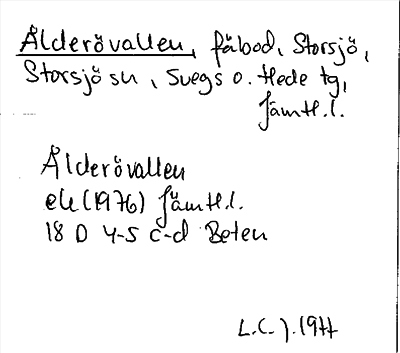 Ålderövallen, fäbod, Storsjö,
Storsjö sn, Svegs o. Hede tg,
Jämtl.l.
Ålderövallen
ek (1976) Jämtl.l.
18 D 4-5 c-d Beten
L.C.J. 1977